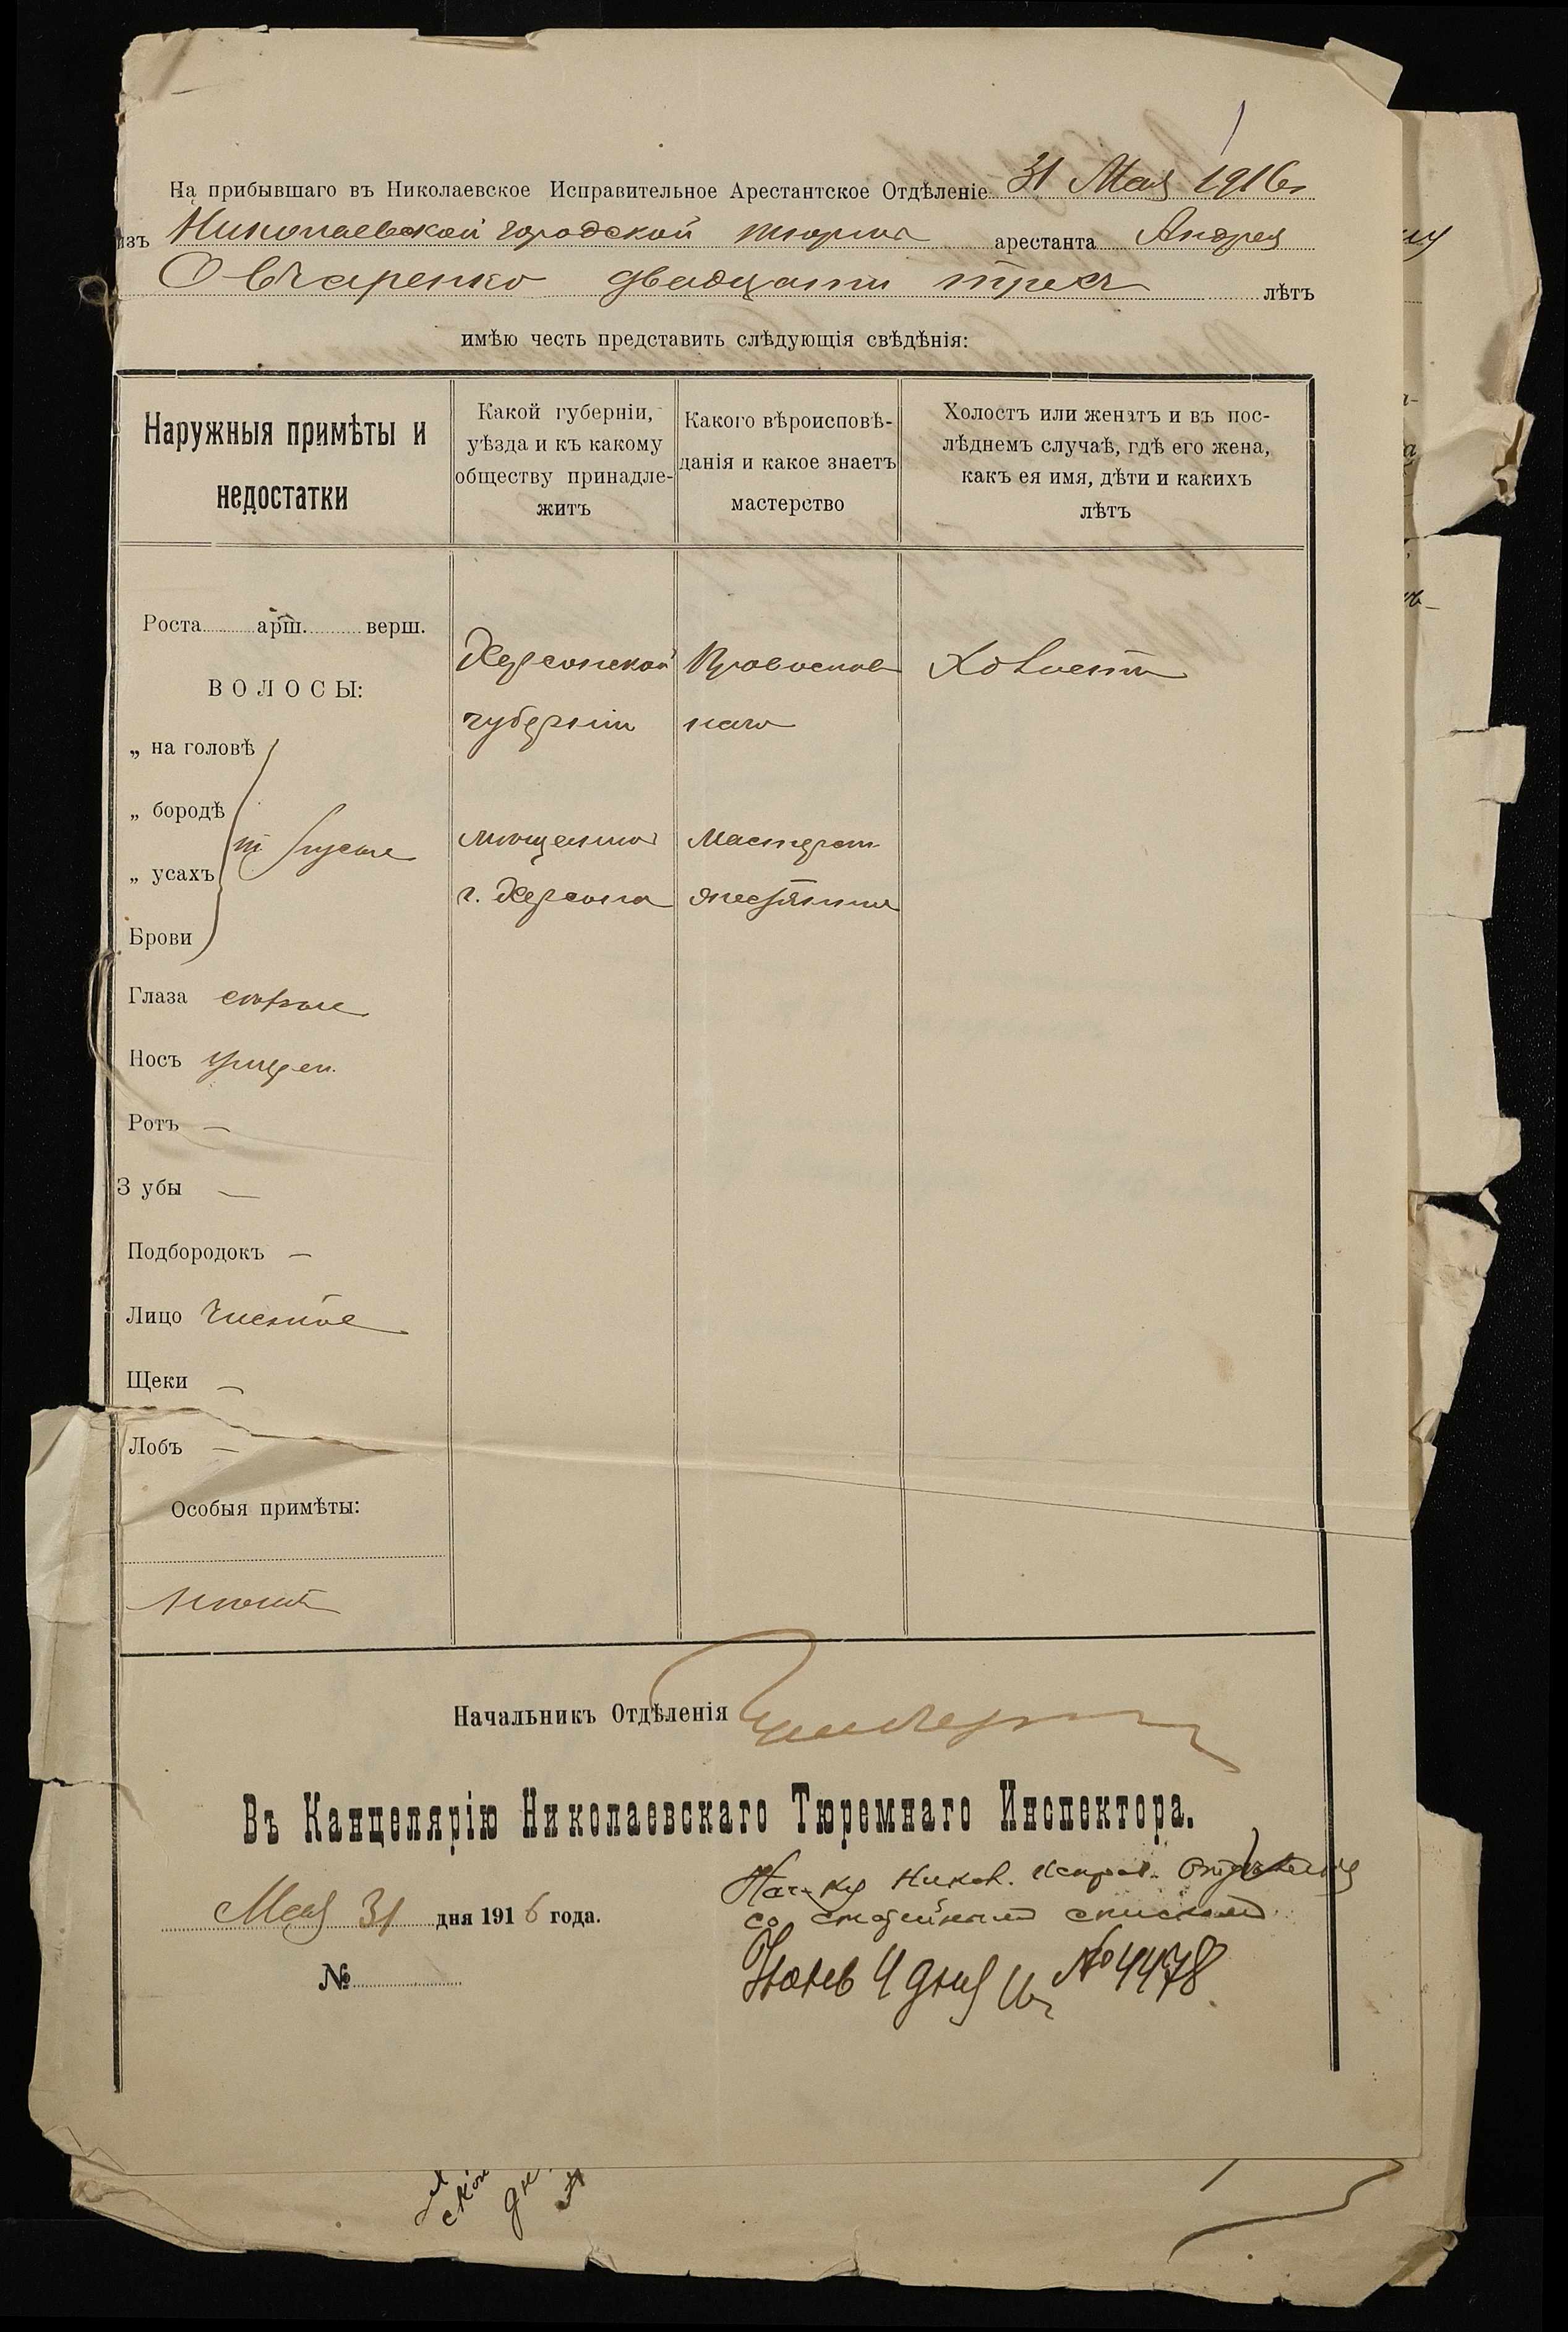 На прибывшаго въ Николаевское Исправительное Арестантское Отдѣленіе 31 Мая 1916 г
изъ Николаевской городской тюрьмы арестанта Андрея
Овчаренко двадцати трехъ лѣтъ
имѣю честь представить слѣдующія свѣдѣнія:
Наружныя примѣты и
недостатки
Какой губерніи,
уѣзда и къ какому
обществу принадле-
житъ
Какого вѣроисповѣ-
данія и какое знаетъ
мастерство
Холостъ или женатъ и въ пос-
лѣднемъ случаѣ, гдѣ его жена,
какъ ея имя, дѣти и какихъ
лѣтъ
Роста арш. верш.
ВОЛОСЫ:
„ на головѣ
„ бородѣ
„ усахъ
т русые
Брови
Глаза сѣрые
Носъ умѣрен.
Ротъ —
Зубы —
Подбородокъ —
Лицо чистое
Щеки —
Лобъ —
Особыя примѣты:
Херсонской
губерніи
мѣщанинъ
г. Херсона
Православ
наго
Мастеръ
жестянщ
Холостъ
Начальникъ Отдѣленія
Въ Канцелярію Николаевскаго Тюремнаго Инспектора.
Мая 31 дня 1916 года.
№
Нач-ку Никол. Исправ. Отдѣленія
со статейнымъ спискомъ
Іюнь 4 дня 16 г №4478